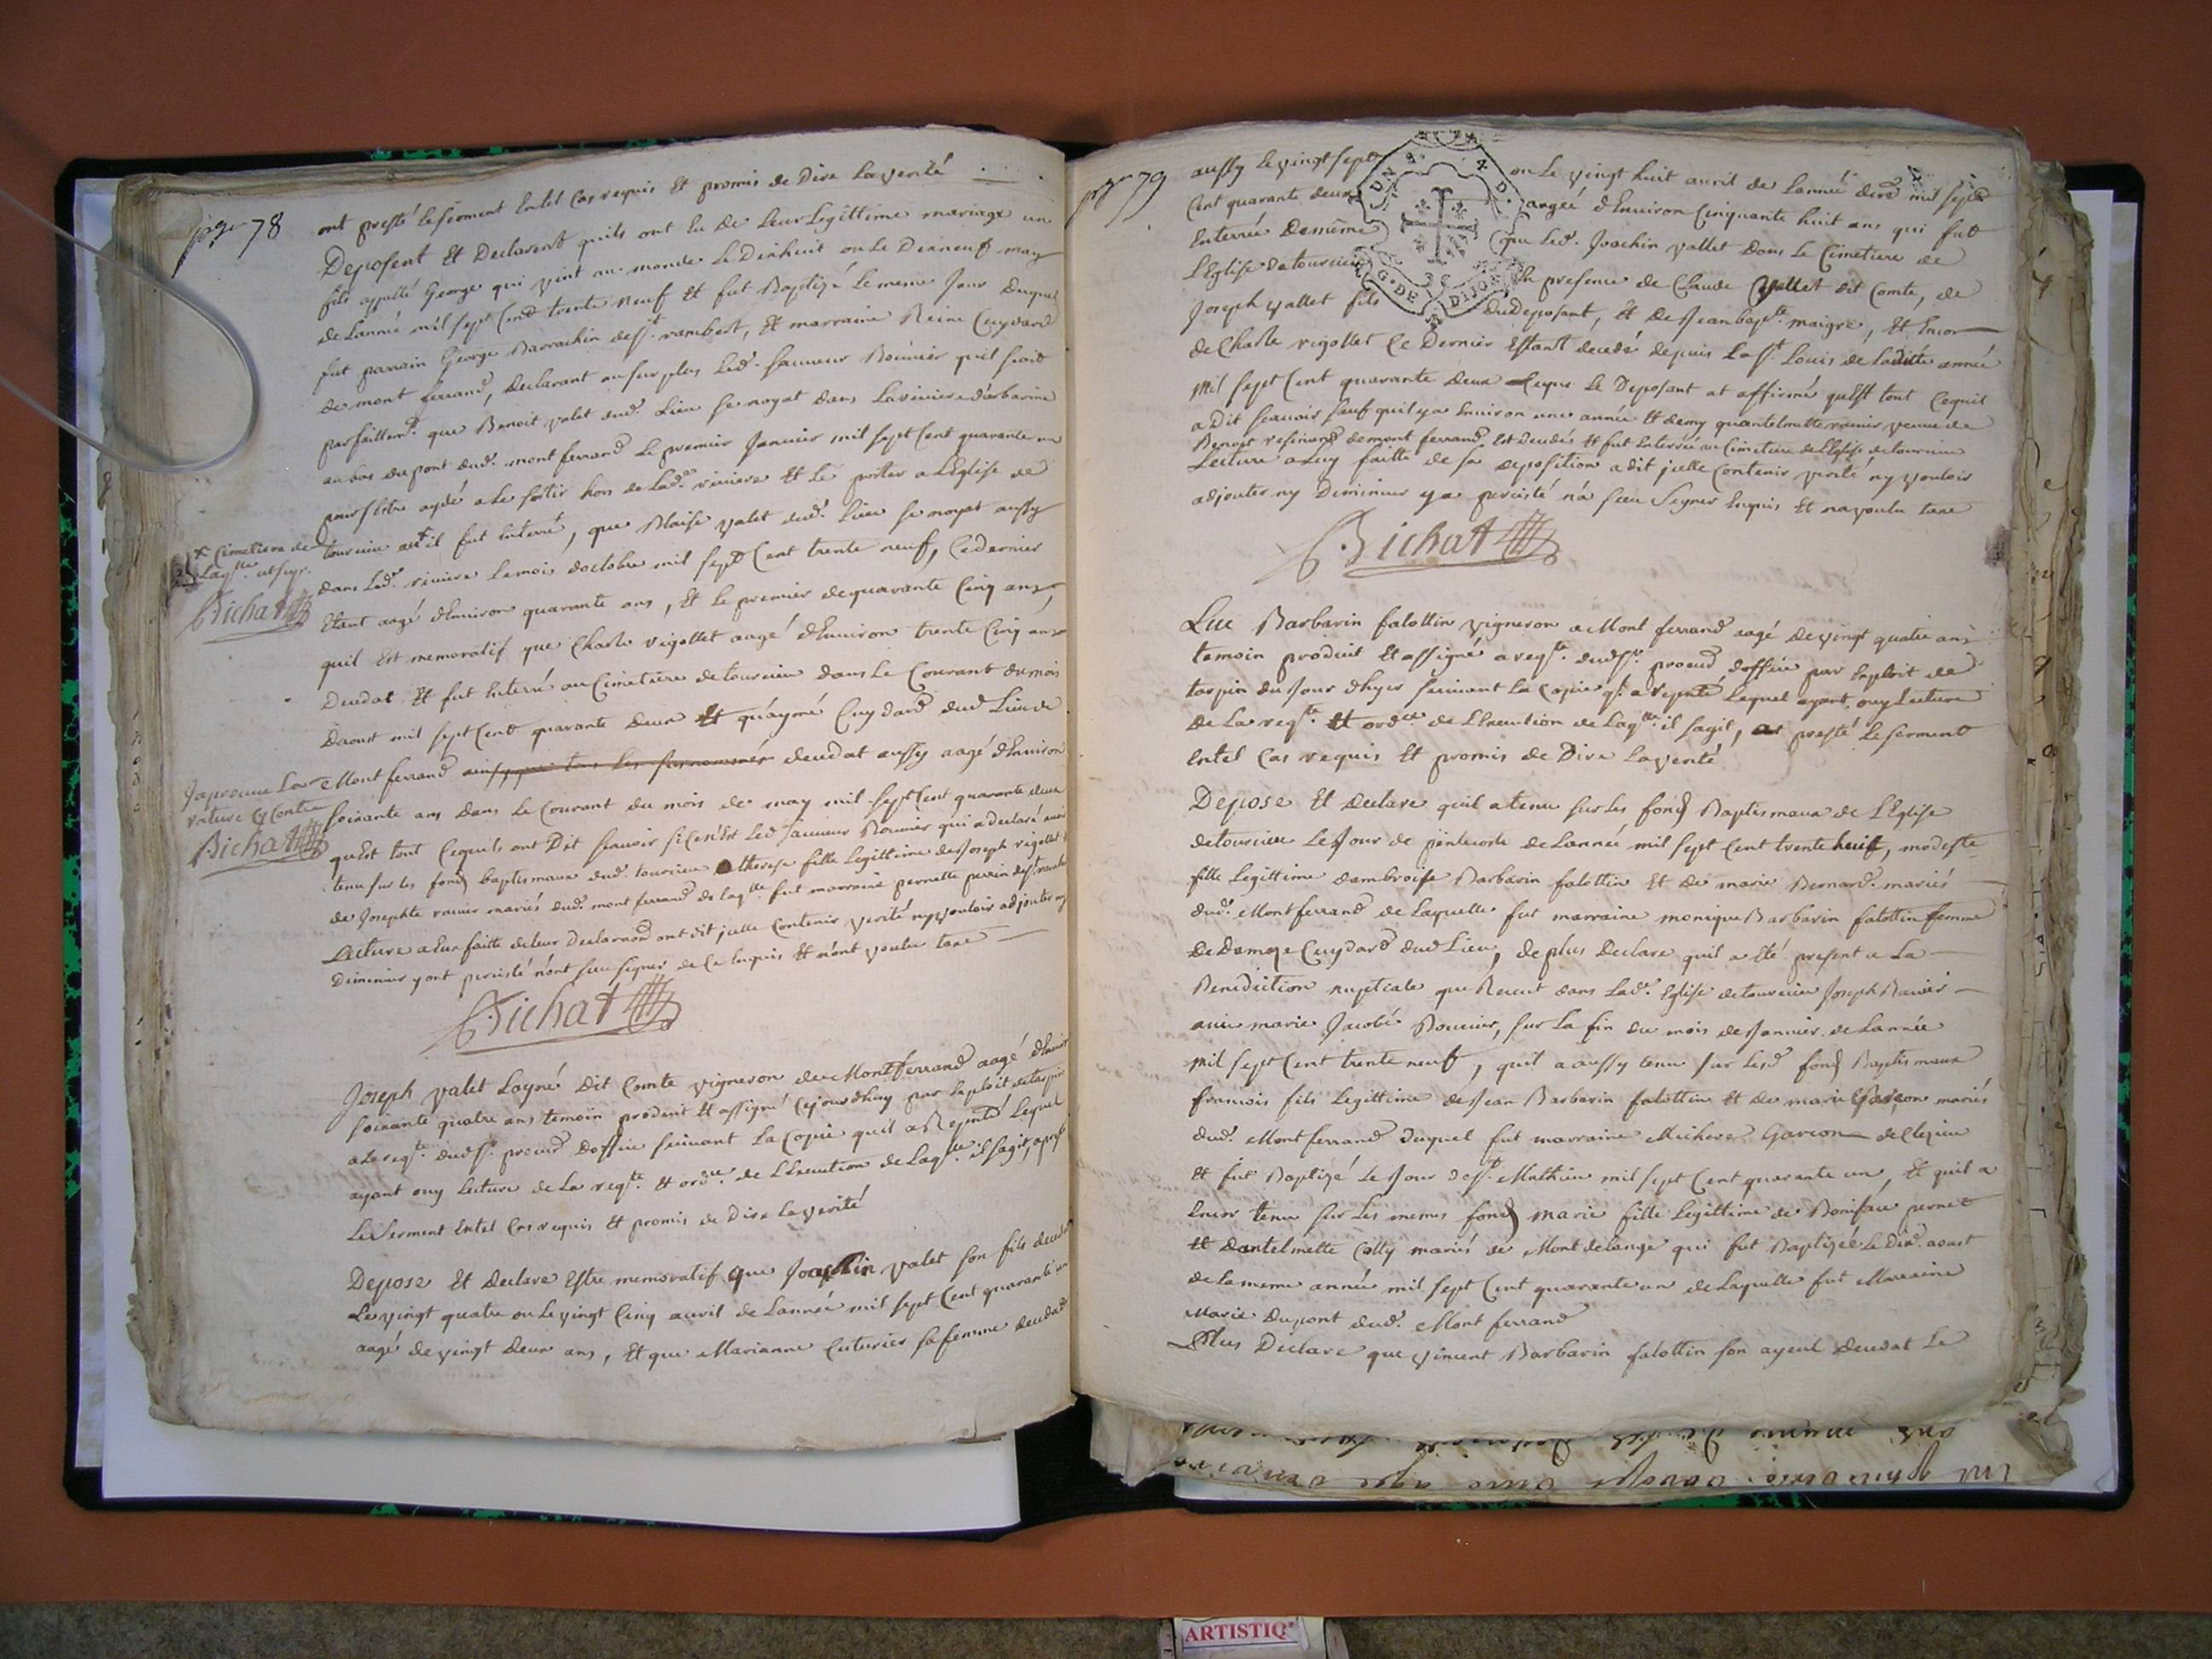 page 78
ont presté le serment Entel Cas requis Et promis de Dire La verité
Deposent Et Declarent quils ont Eu De Leur Legittime mariage un
fils appellé George qui vint au monde Le Dixhuit ou Le Dixneuf may
de Lannée mil sept Cent trente neuf Et fut Baptizé Le meme Jour Duquel
fut parrain George Barrachin de st. rambert, Et marraine Reine Cuydard
de mont ferrand, Declarant au surplus Led. sauveur Bouvier quil scait
parfaittemt. que Benoit valet dud. Lieu se noyat dans La riviere d'arbarine
au bas du pont dud. mont ferrand Le premier Janvier mil sept Cent quarante un
pour sestre aydé a Le sortir hors de Lad. riviere Et Le porter a LEglise de
tourcieu ou il fut Enterré, que Blaise valet dud. Lieu se noyat aussy
dans Led. riviere Le mois doctobre mil sept Cent trente neuf, Ce dernier
Etant aagé dEnviron quarante ans, Et Le premier de quarante Cinq ans,
quil Est memoratif que Charle vigollet aagé dEnviron trente Cinq ans
Decedat Et fut Enterré au Cimetiere de tourcieu dans Le Courant du mois
Daoust mil sept Cent quarante Deux Et quaymé Cuydard dud Lieu de
Mont ferrand ainsy que tous Les susnommés decedat aussy aagé dEnviron
soixante ans dans Le Courant du mois de may mil sept Cent quarante deux
quEst tout Cequils ont Dit scavoir si Ce n'Est Led sauveur Bouvier qui a declaré avoir
tenu sur Les fonds baptismaux dud. tourcieu therese fille Legittime de Joseph vigollet
de Josephte ravier mariés dud. mont ferrand de laqlle. fut marraine pernette perrin de st.
Lecture a Eux faitte de leur Declaraon ont dit jcelle Contenir verité ny vouloir adjouter ny
Diminuer y ont percisté n'ont sceu signer de Ce Enquis Et n'ont voulu taxe
Bichat
x Cimetiere de
Laqlle.
Bichat
Japreuve La
rature Cy Contre
Bichat
Joseph valet Layné Dit Comte vigneron de Montferrand aagé dEnviron
soixante quatre ans temoin produit Et assigné Cejourdhuy par Exploit de tarpin
a La reqte. dud sr. procur Doffice suivant La Copie quil a Repntée Lequel
ayant ouy Lecture de La reqte. Et ordce. de LExecution de Laqlle. il sagit, a presté
Le serment Entel Cas requis Et promis de Dire La verité
Depose Et declare Estre memoratif que Joachin valet son fils decedat
Le vingt quatre ou Le vingt Cinq avril de Lannée mil sept Cent quarante un
aagé de vingt deux ans, Et que Marianne Cuturier sa femme decedat
page 79
aussy Le vingt sept ou Le vingt huit avril de Lannée dere mil sept
Cent quarante deux aagée dEnviron Cinquante huit ans qui fut
Enterrée De même que Led. Joachin vallet Dans Le Cimetiere de
LEglise De tourcieu En presence de Claude vallet dit Comte, de
Joseph vallet fils du Deposant, Et De Jean bapte. maigre, Et Encor
de Charle vigollet Ce Dernier Estant decedé depuis La st. Louis de Laditte année
mil sept Cent quarante deux Ceque Le Deposant at affirmé quEst tout Cequil
a Dit scavoir sauf quil y a Environ une année Et demy quantelmette ravier veuve de
Benoit de mont ferrand Est decedée Et fut Enterrée au Cimetiere de lEglise de tourcieu
Lecture a Luy faitte de sa deposition a dit jcelle Contenir verité ny vouloir
adjouter ny Diminuer y a percisté n'a sceu signer Enquis Et na voulu taxe
Bichat
Luc Barbarin falottin vigneron a Mont ferrand aagé de vingt quatre ans
temoin produit Et assigné a reqte. dud sr. procur doffice par Exploit de
tarpin du Jour dhyer suivant La Copie ql. a repntée Lequel ayant ouy Lecture
De La reqte. Et ordce. de LExecution de Laqlle. il sagit, at presté Le serment
Entel Cas requis Et promis de Dire La verité
Depose Et declare quil a tenu sur Les fonds Baptismaux de LEglise
de tourcieu Le Jour de pentecote de Lannée mil sept Cent trente huit, modeste
fille Legittime dambroise Barbarin falottin Et de marie Bernard mariés
dud. Montferrand de Laquelle fut marraine monique Barbarin falottin femme
De Domge Cuydard dud Lieu, de plus Declare quil a Eté present a La
Benediction nuptiale que Receut dans Lad. Eglise de tourcieu Joseph Ravier
avec marie Jacobé Bouvier, sur La fin du mois de Janvier de Lannée
mil sept Cent trente neuf, quil a aussy tenu sur Lesd fonds Baptismaux
francois fils Legittime de Jean Barbarin falottin Et de marie Garcon mariés
dud. Montferrand duquel fut marraine Garcon de Clezieu
Et fut Baptizé Le Jour de st. Mathieu mil sept Cent quarante un, Et quil a
Encor tenu sur Les memes fonds marie fille Legittime de Boniface pernet
Et dantelmette Colly mariés de Mont delange qui fut Baptizée Le Dix aoust
de La meme année mil sept Cent quarante un de Laquelle fut Marraine
Marie Dupont dud. Mont ferrand
Plus Declare que vincent Barbarin falottin son ayeul decedat Le
G. DE DIJON
ARTISTIQ